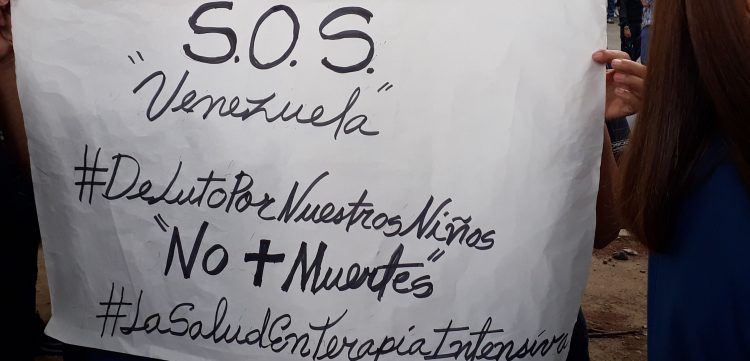 S.O.S.
"Venezuela"
#DeLutoPorNuestrosNiños
"No + Muertes"
#LaSaludEnTerapiaIntensiva